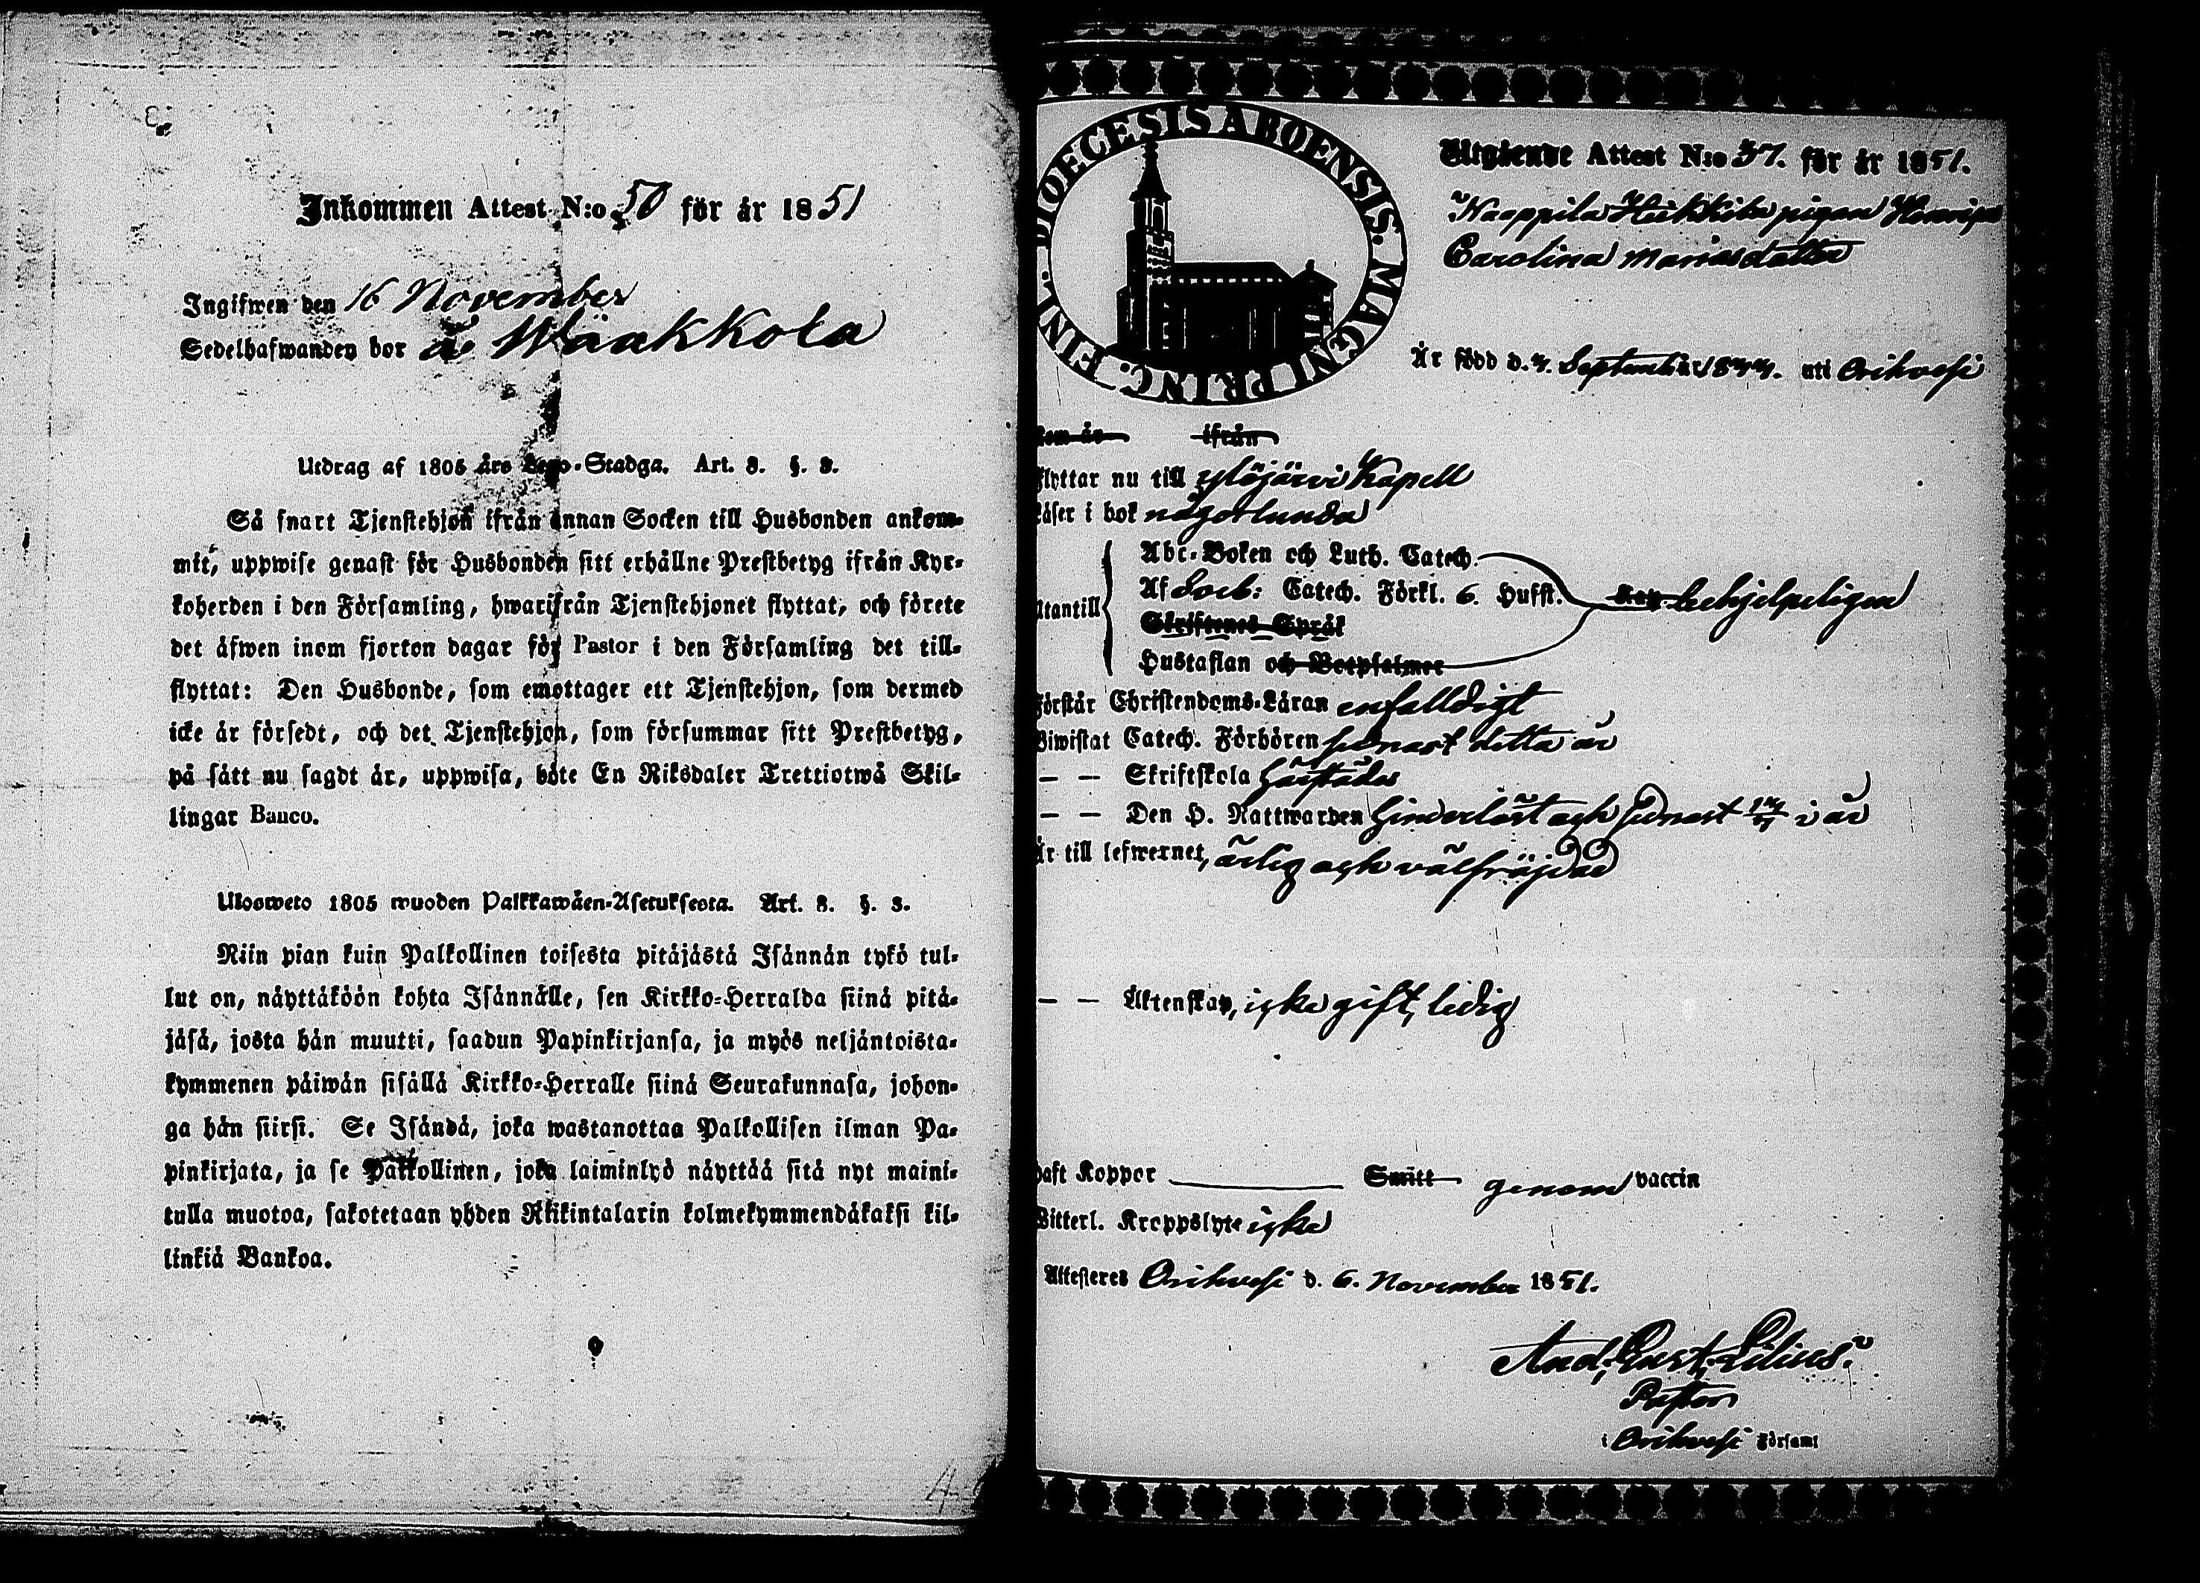 Inkommen Attest N:o 50 för år 1851
Ingifwen den 16 November
Sedelhafwanden bor å Wäakkola
Utdrag af 1805 års Lego-Stadga. Art. 8. §. 3.
Så snart Tjenstehjon ifrån annan Socken till Husbonden ankom-
mit, uppwise genast för Husbonden sitt erhållne Prestbetyg ifrån Kyr-
koherden i den Församling, hwarifrån Tjenstehjonet flyttat, och förete
det äfwen inom fjorton dagar för Pastor i den Församling det till-
flyttat: Den Husbonde, som emottager ett Tjenstehjon, som dermed
icke är försedt, och det Tjenstehjon, som försummar sitt Prestbetyg,
på sätt nu sagdt är, uppwisa, böte En Riksdaler Trettiotwå Skil-
lingar Banco.
Ulosweto 1805 wuoden Palkkawäen-Asetuksesta. Art. 8. §. 3.
Niin pian kuin Palkollinen toisesta pitäjästä Isännän tykö tul-
lut on, näyttäköön kohta Isännälle, sen Kirkko-Herralda siinä pitä-
jäsä, josta hän muutti, saadun Papinkirjansa, ja myös neljäntoista-
kymmenen päiwän sisällä Kirkko-Herralle siinä Seurakunnasa, johon-
ga hän siirsi. Se Isändä, joka wastanottaa Palkollisen ilman Pa-
pinkirjata, ja se Palkollinen, joka laiminlyö näyttää sitä nyt maini-
tulla muotoa, sakotetaan yhden Rikintalarin kolmekymmendäkaksi kil-
linkiä Bankoa.
DIOECESIS ABOENSIS. MAGNI PRINC. FINL.
Utgående Attest N:o 57. för år 1851.
Naappila Heikkila pigan
Carolina Mariasdotter
Är född d. 4. September 1844. uti Orihvesi
Kom år ifrån
Flyttar nu till Ylöjärvi Kapell
Läser i bok någorlunda
Utantill
Abc-Boken och Luth. Catech.
Af Soeb: Catech. Förkl. 6. Hufst.
behjelpeligen
Skriftenes Språk
Hustaflan och Botpsalmer
Förstår Christendoms-Läran enfalldigt
Biwistat Catech. Förhören sednast detta år
— — Skriftskola
— — Den H. Nattwarden hinderlöst och sednast i år
Är till lefwernet, ärlig och välfräjdad
— — Äktenskap, icke gift, ledig
Haft Koppor Smitt genom vaccin
Witterl. Kroppslyte icke
Attesteres Orihvesi d. 6. November 1851.
And. Gust. Lilius.
Pastor
i Orihvesi Församl